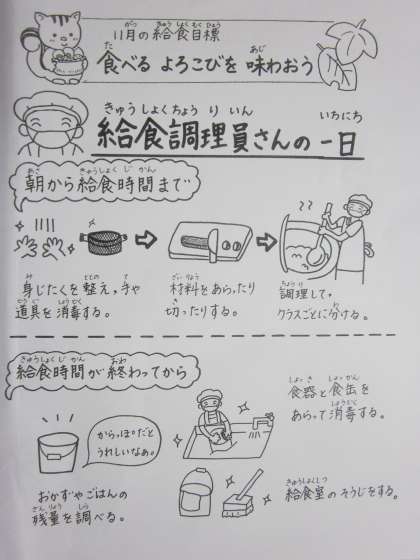 11月の給食目標
食べる よろこびを 味わおう
給食調理員さんの一日
朝から給食時間まで
身じたくを整え,手や
道具を消毒する。
材料をあらったり
切ったりする。
調理して,
クラスごとに分ける。
給食時間が終わってから
からっぽだと
うれしいなぁ。
おかずやごはんの
残量を調べる。
食器と食缶を
あらって消毒する。
給食室のそうじをする。